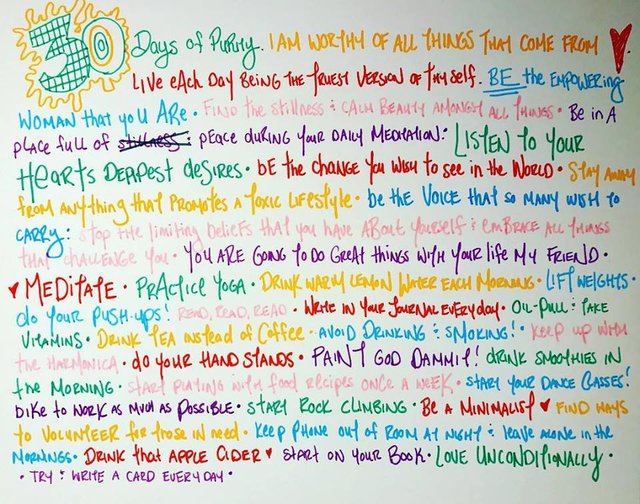 30 Days of Purity. I AM WORTHY OF ALL THINGS THAT COME FROM ♥
LIVE EACH DAY BEING THE TRUEST VERSION OF THYSELF. BE the EMPOWERING
WOMAN that you ARE • FIND the STILLNESS & CALM BEAUTY AMONGST ALL THINGS • Be in A
place full of stillness: peace DURING YOUR DAILY MEDITATION: LISTEN to YOUR
Hearts DEAPEST desires • bE the CHANGE You WISH to see in the WORLD • STAY AWAY
FROM ANYthing that PROMOTES A TOXIC LIFESTYLE • be the VOICE that so MANY WISH to
CARRY: stop the limiting beliefs that you have About yourself & emBRACE ALL THINGS
that CHALLENGE YOU • YOU ARE GOING to DO GREAT things WITH YOUR life MY FRIEND •
♥ MEDITATE • PRACTICE YOGA • DRINK WARM LEMON WATER EACH MORNING • LIFT WEIGHTS •
do YOUR PUSH-UPS! READ, READ, READ • WRITE IN YOUR JOURNAL EVERYDAY • OIL-PULL & TAKE
VITAMINS • DRINK TEA INSTEAD of COFFEE • AVOID DRINKING & SMOKING! • KEEP UP WITH
the HARMONICA • do YOUR HAND STANDS • PAINT GOD DAMMIT! dRINK SMOOTHIES IN
the MORNING • START PLAYING WITH food RECIPES ONCE A WEEK • START YOUR DANCE CLASSES!
bIKE to WORK AS MUCH AS POSSIBLE • START ROCK CLIMBING • BE A MINIMALIST ♥ FIND WAYS
to VOLUNTEER for those IN need • KEEP PHONE OUT of ROOM AT NIGHT & leave Alone in the
MORNINGS • DRINK that APPLE CIDER ♥ START ON YOUR BOOK • LOVE UNCONDITIONALLY •
• TRY & WRITE A CARD EVERYDAY •